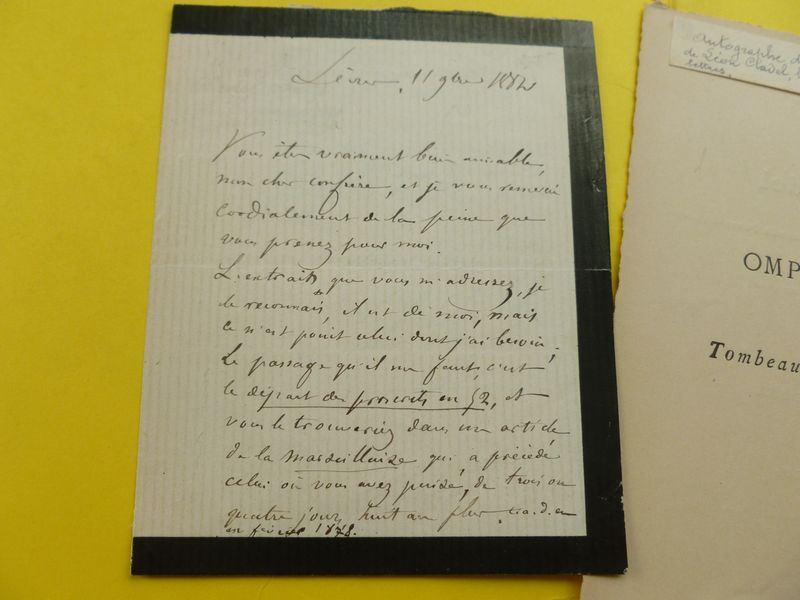 Sèvres, 11 9bre 1882
Vous êtes vraiment bien aimable,
mon cher confrère, et je vous remercie
cordialement de la peine que
vous prenez pour moi.
L'extrait que vous m'adressez, je
le reconnais, il est de moi, mais
ce n'est point celui dont j'ai besoin;
Le passage qu'il me faut, c'est
le départ des proscrits en 52, et
vous le trouverez dans un article
de la Marseillaise qui a précédé
celui où vous avez puisé, de trois ou
quatre jours, huit au plus, c.a.d. en
en février 1878.
Autographe d
de Léon Cladel,
lettres.
OMP
Tombeau